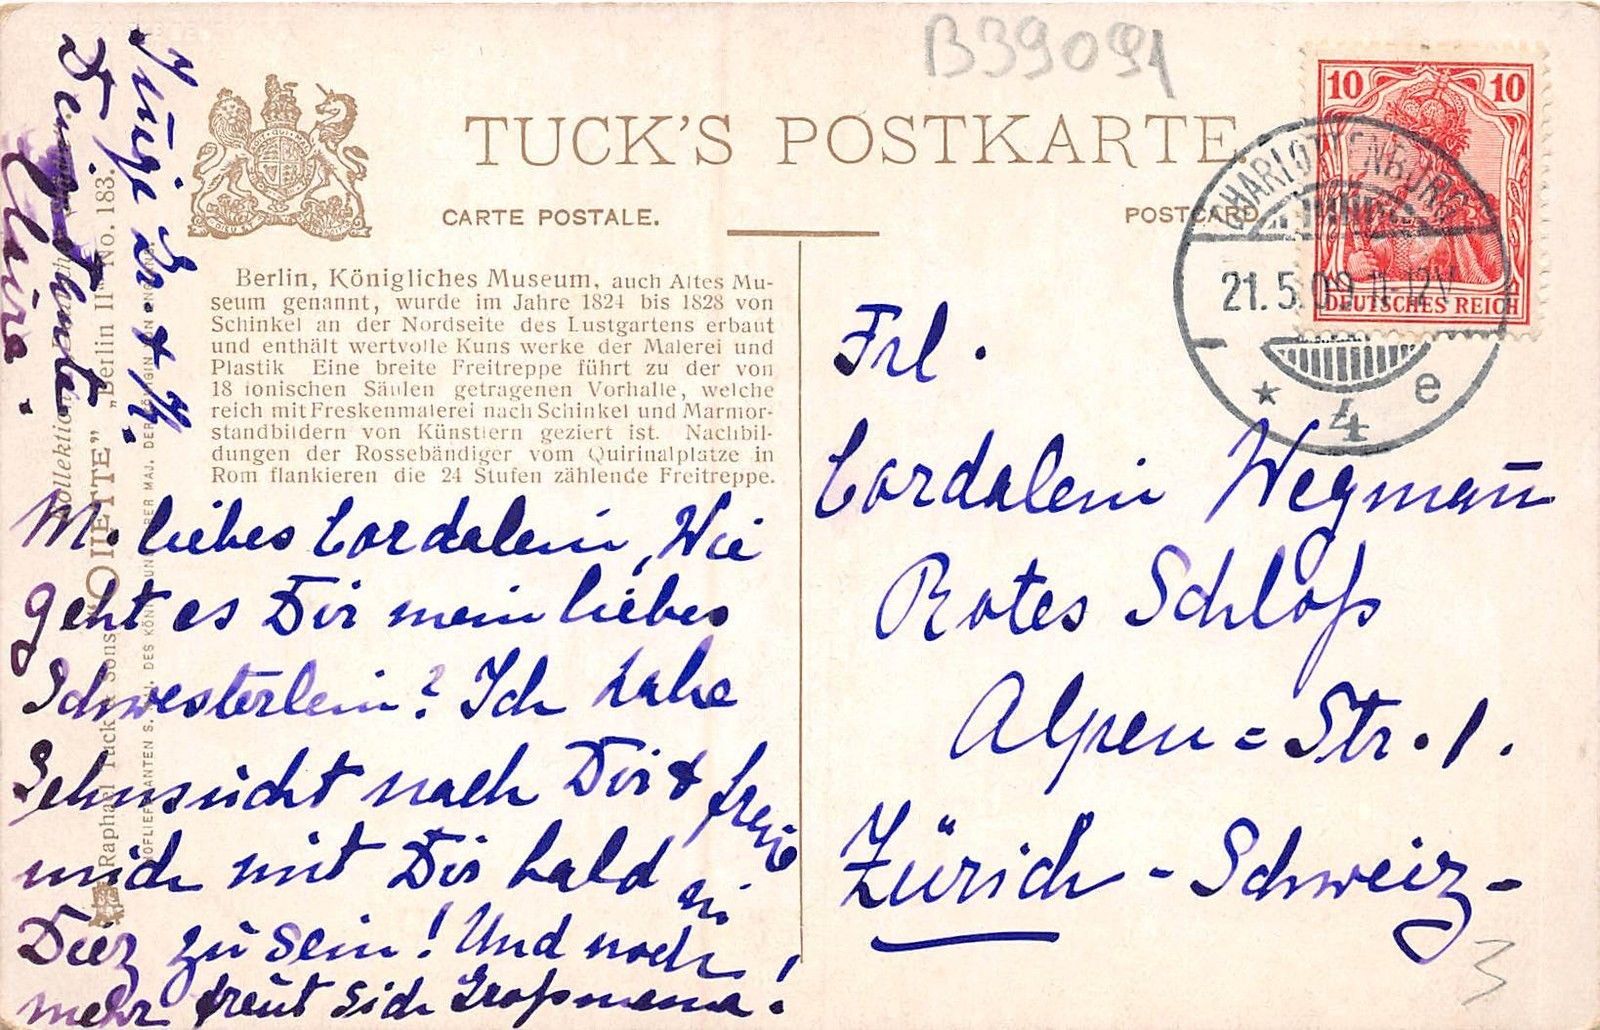 B39091
TUCK'S POSTKARTE
CARTE POSTALE.
POSTCARD
10 10
DEUTSCHES REICH
CHARLOTTENBURG
21.5.09 11-12V
* 4 e
Berlin, Königliches Museum, auch Altes Mu-
seum genannt, wurde im Jahre 1824 bis 1828 von
Schinkel an der Nordseite des Lustgartens erbaut
und enthält wertvolle Kuns werke der Malerei und
Plastik Eine breite Freitreppe führt zu der von
18 ionischen Säulen getragenen Vorhalle, welche
reich mit Freskenmalerei nach Schinkel und Marmor-
standbildern von Künstlern geziert ist. Nachbil-
dungen der Rossebändiger vom Quirinalplatze in
Rom flankieren die 24 Stufen zählende Freitreppe.
M. liebes Cordalein, Wie
geht es Dir mein liebes
Schwesterlein? Ich habe
Sehnsucht nach Dir & freue
mich mit Dir bald in
Diez zu sein! Und noch
mehr freut sich Großmama!
Clara.
Raphael Tuck & Sons "OILETTE" „Berlin II" No. 183.
HOFLIEFERANTEN S. MAJ. DES KÖNIGS UND IHRER MAJ. DER KÖNIGIN VON
Frl.
Cordalein Wegmann
Rotes Schloß
Alpen=Str. 1.
Zürich - Schweiz -
3